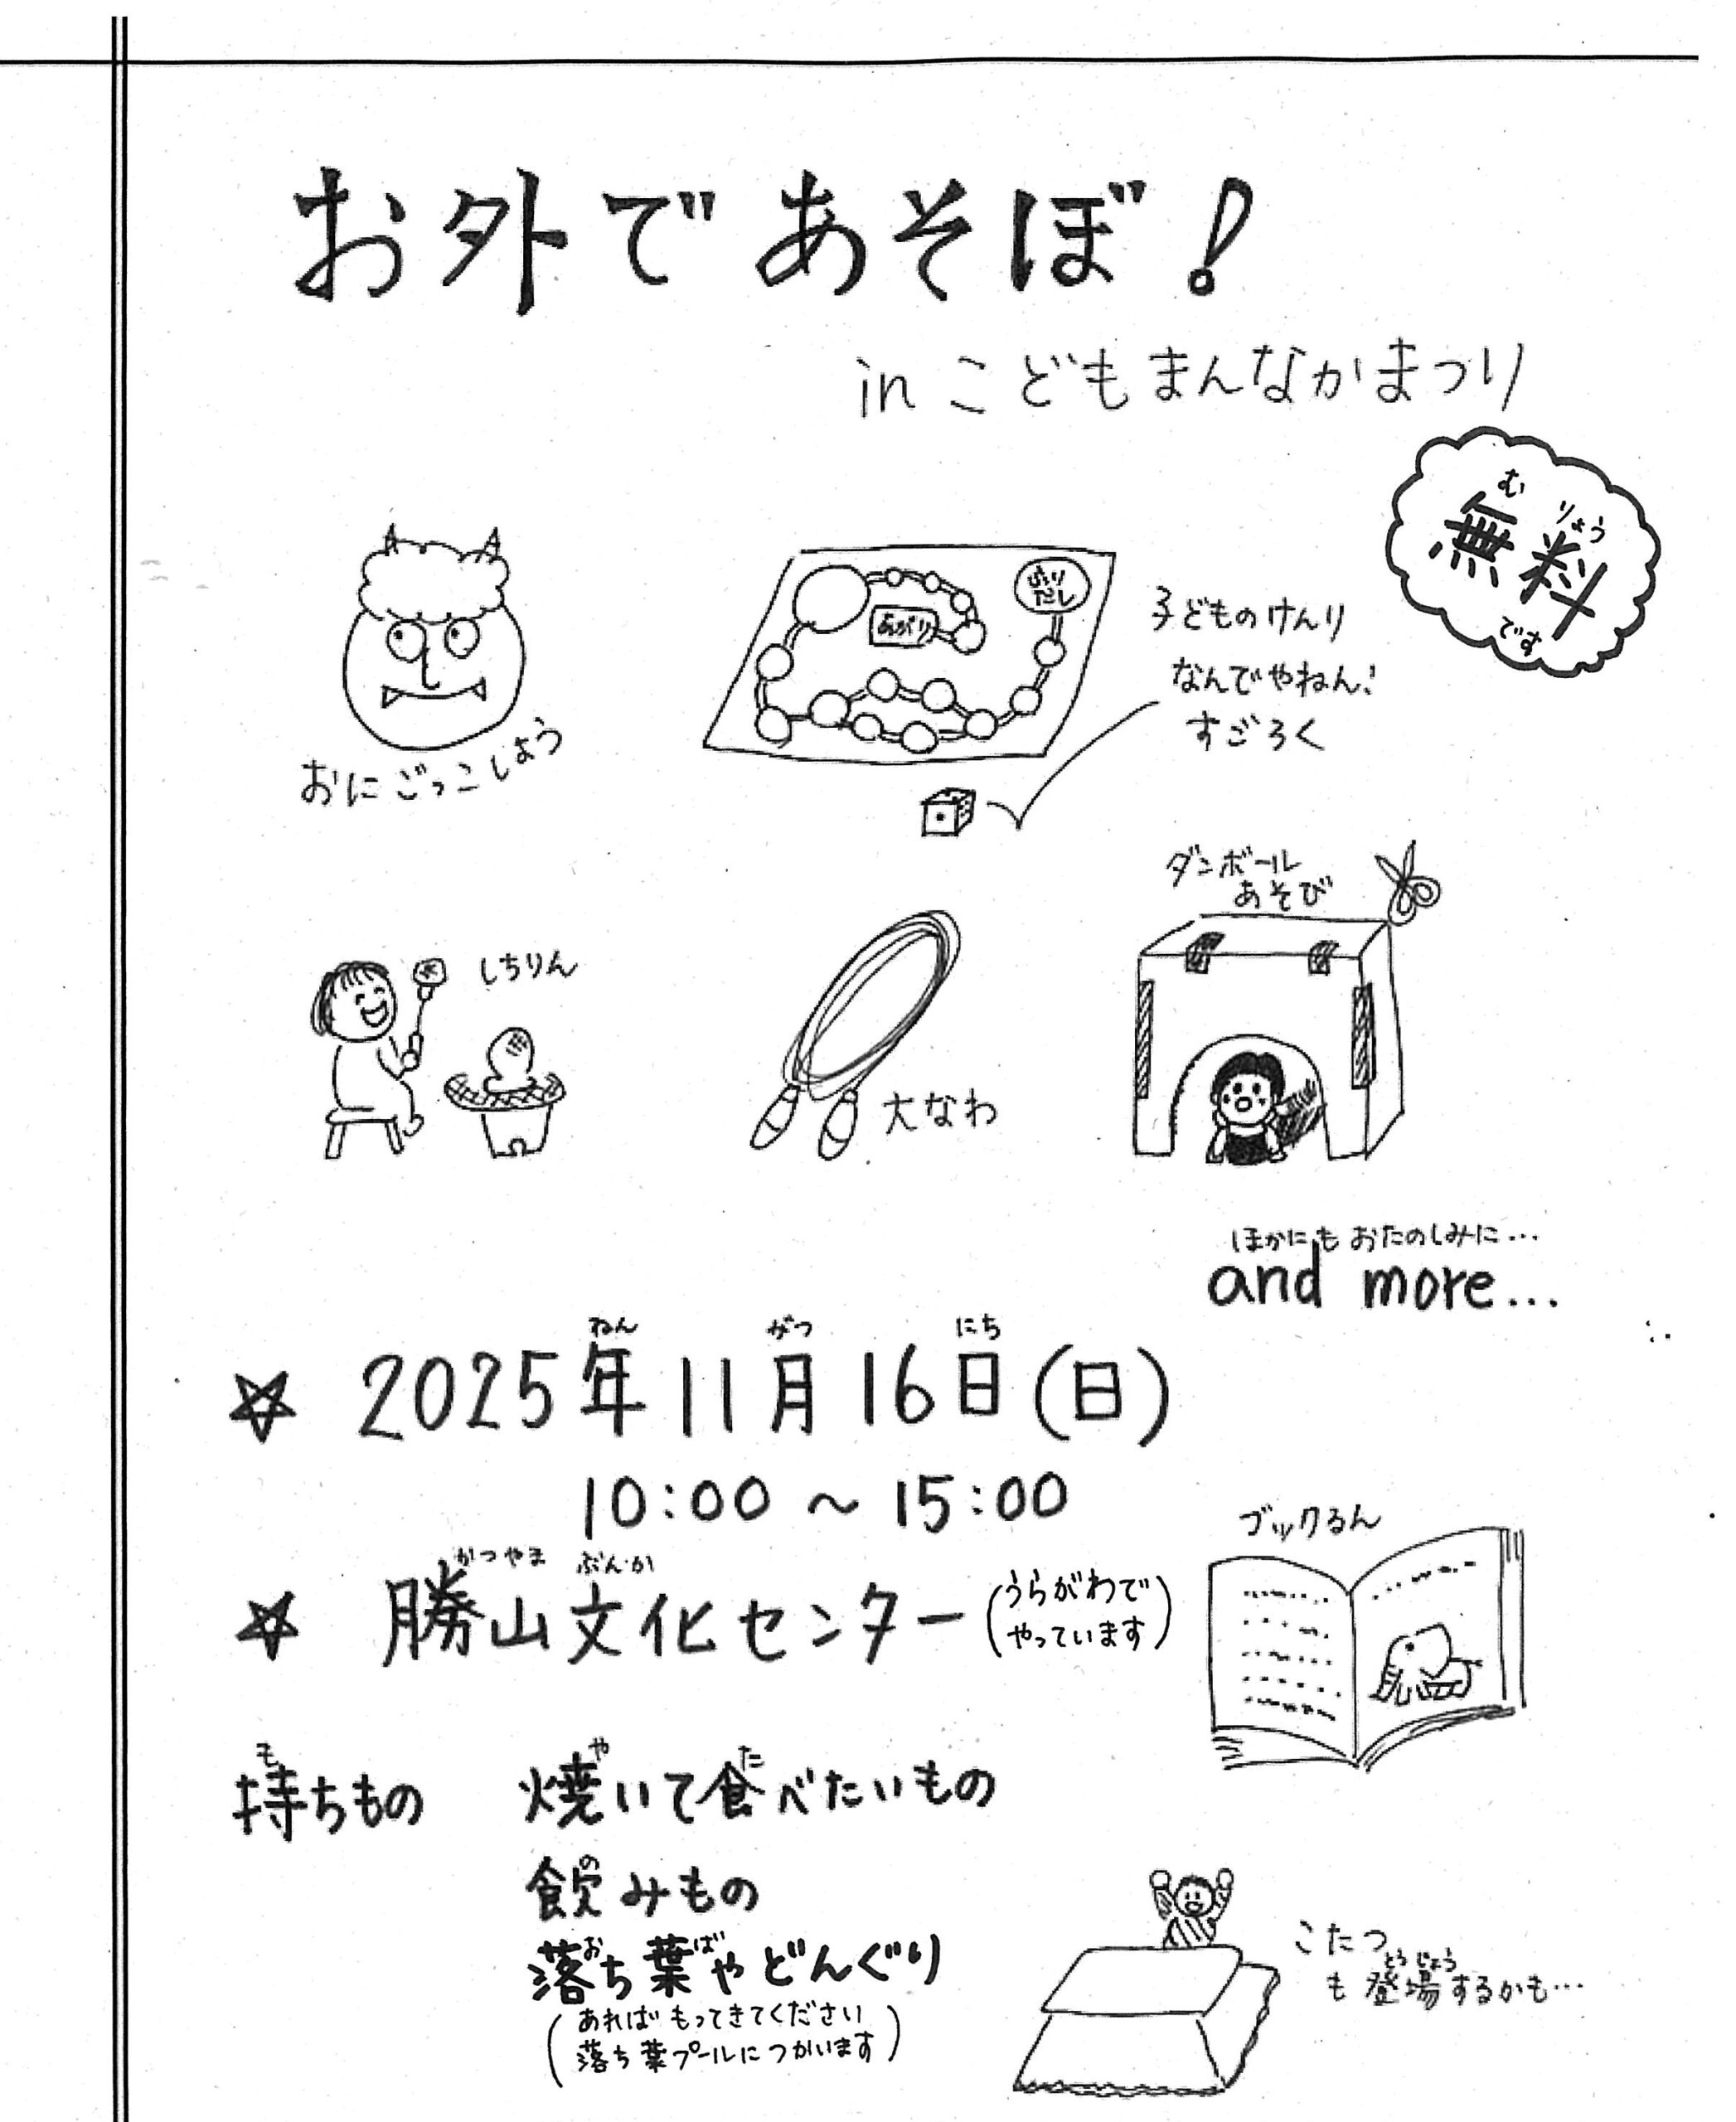 お外であそぼ!
in こどもまんなかまつり
む りょう
無料
です
おにごっこしよう
ふり
だし
あがり
子どものけんり
なんでやねん!
すごろく
しちりん
大なわ
ダンボール
あそび
ほかにも おたのしみに…
and more...
ねん がつ にち
☆ 2025年11月16日(日)
10:00 ~ 15:00
かつやま ぶんか
☆ 勝山文化センター(うらがわで
やっています)
ブックるん
も や た
持ちもの 焼いて食べたいもの
の
飲みもの
お ば
落ち葉やどんぐり
(あれば もってきてください
落ち葉プールにつかいます)
こたつ
とうじょう
も登場するかも…